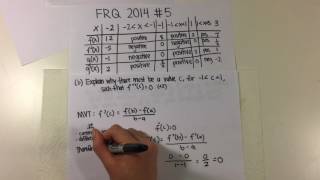 FRQ 2014 #5
x -2 -2<x<-1 -1 -1<x<1 1 1<x<3 3
f(x) 12 positive 8 positive 2 positive 7
f'(x) -5 negative 0 negative 0 positive
g(x) -1 negative 0 positive 3 positive 1
g'(x) 2 positive positive 0 negative
(b) Explain why there must be a value c, for -1<c<1,
such that f''(c)=0
MVT: f'(c) = f(b)-f(a)
b-a
f''(c)=0
f'(b)-f'(a)
b-a
Therefore
0-0
1--1
= 0
2
=0